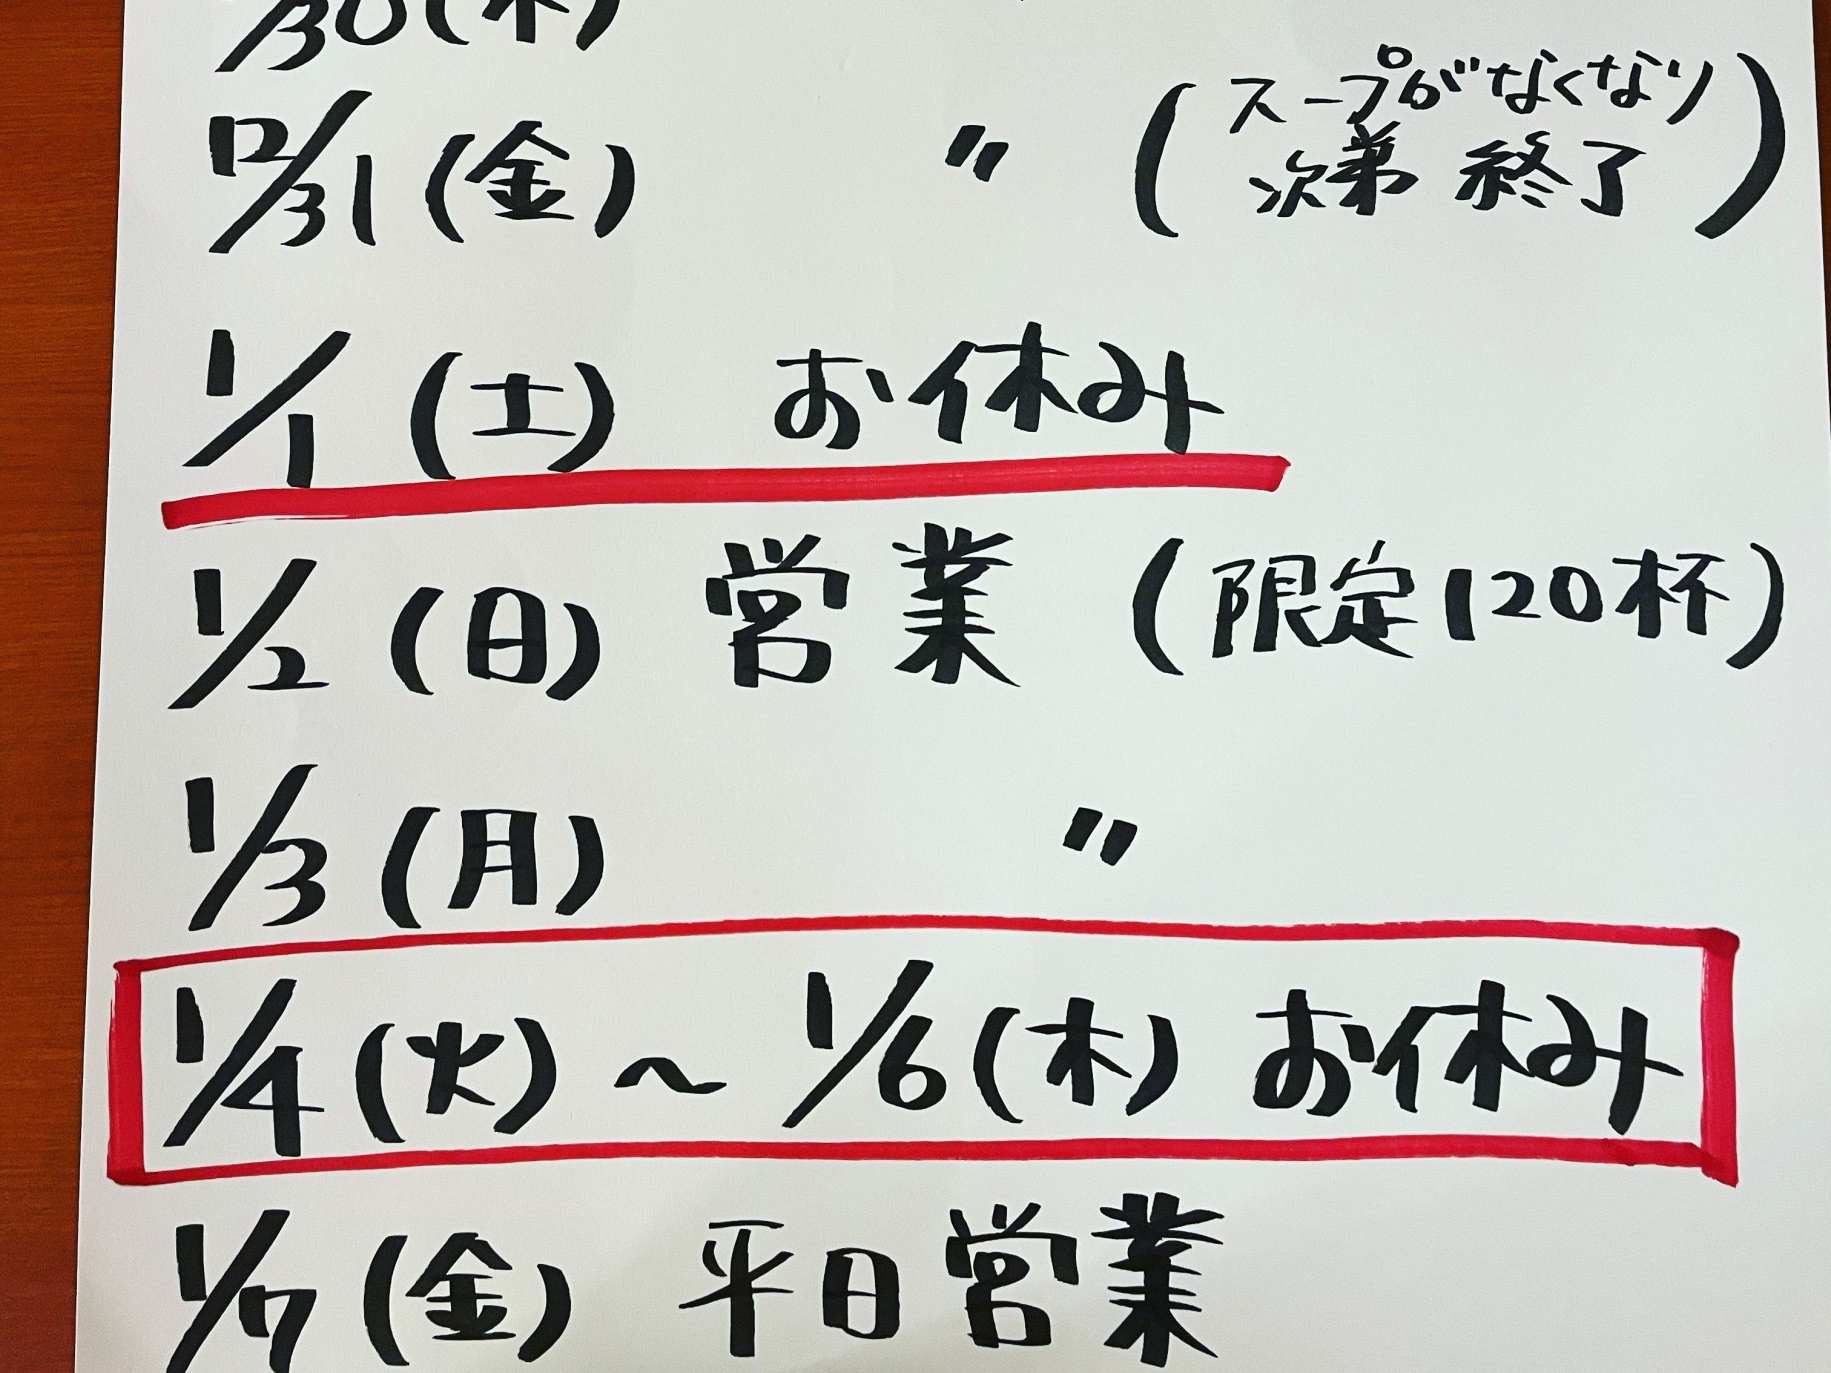 12/30(木)
12/31(金) 〃 (スープがなくなり
次第 終了)
1/1(土) お休み
1/2(日) 営業(限定120杯)
1/3(月) 〃
1/4(火)~1/6(木)お休み
1/7(金) 平日営業